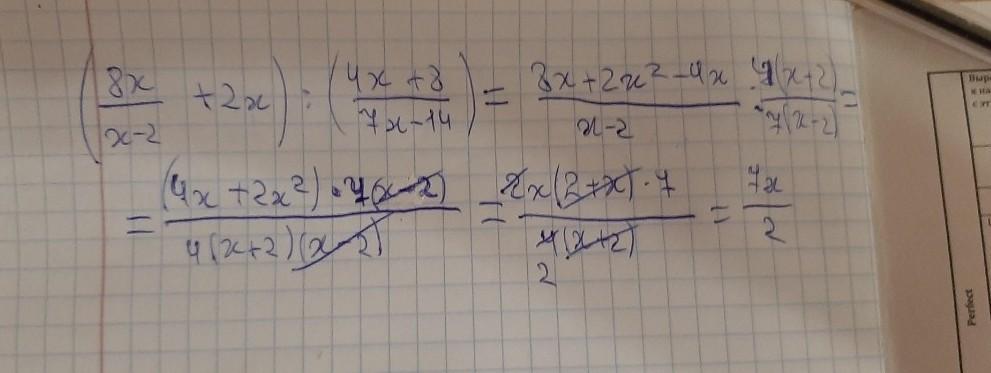 (8x/(x-2) + 2x) : (4x + 8)/(7x - 14) = (8x + 2x² - 4x)/(x-2) · 4(x+2)/7(x-2) =
= (4x + 2x²) · 7(x-2)/4(x+2)(x-2) = 2x(2+x) · 7/4(x+2) 2 = 7x/2
Perfect